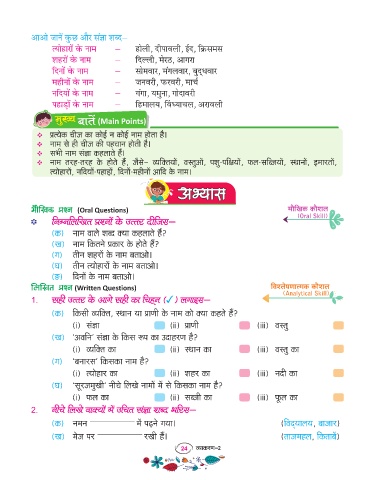 आओ जानें कुछ और संज्ञा शब्द–
त्योहारों के नाम – होली, दीपावली, ईद, क्रिसमस
शहरों के नाम – दिल्ली, मेरठ, आगरा
दिनों के नाम – सोमवार, मंगलवार, बुद्धवार
महीनों के नाम – जनवरी, फरवरी, मार्च
नदियों के नाम – गंगा, यमुना, गोदावरी
पहाड़ों के नाम – हिमालय, विंध्याचल, अरावली
मुख्य बातें (Main Points)
❖ प्रत्येक चीज का कोई न कोई नाम होता है।
❖ नाम से ही चीज की पहचान होती है।
❖ सभी नाम संज्ञा कहलाते हैं।
❖ नाम तरह-तरह के होते हैं, जैसे– व्यक्तियों, वस्तुओं, पशु-पक्षियों, फल-सब्जियों, स्थानों, इमारतों,
त्योहारों, नदियों-पहाड़ों, दिनों-महीनों आदि के नाम।
अभ्यास
मौखिक प्रश्न (Oral Questions) मौखिक कौशल
(Oral Skill)
निम्नलिखित प्रश्नों के उत्तर दीजिए–
(क) नाम वाले शब्द क्या कहलाते हैं?
(ख) नाम कितने प्रकार के होते हैं?
(ग) तीन शहरों के नाम बताओ।
(घ) तीन त्योहारों के नाम बताओ।
(ङ) दिनों के नाम बताओ।
लिखित प्रश्न (Written Questions) विश्लेषणात्मक कौशल
(Analytical Skill)
1. सही उत्तर के आगे सही का चिह्न (✓) लगाइए–
(क) किसी व्यक्ति, स्थान या प्राणी के नाम को क्या कहते हैं?
(i) संज्ञा (ii) प्राणी (iii) वस्तु
(ख) 'अवनि' संज्ञा के किस रूप का उदाहरण है?
(i) व्यक्ति का (ii) स्थान का (iii) वस्तु का
(ग) 'बनारस' किसका नाम है?
(i) त्योहार का (ii) शहर का (iii) नदी का
(घ) 'सूरजमुखी' नीचे लिखे नामों में से किसका नाम है?
(i) फल का (ii) सब्जी का (iii) फूल का
2. नीचे लिखे वाक्यों में उचित संज्ञा शब्द भरिए–
(क) नमन ________ में पढ़ने गया। (विद्यालय, बाजार)
(ख) मेज पर ________ रखी हैं। (ताजमहल, किताबें)
24 व्याकरण-2